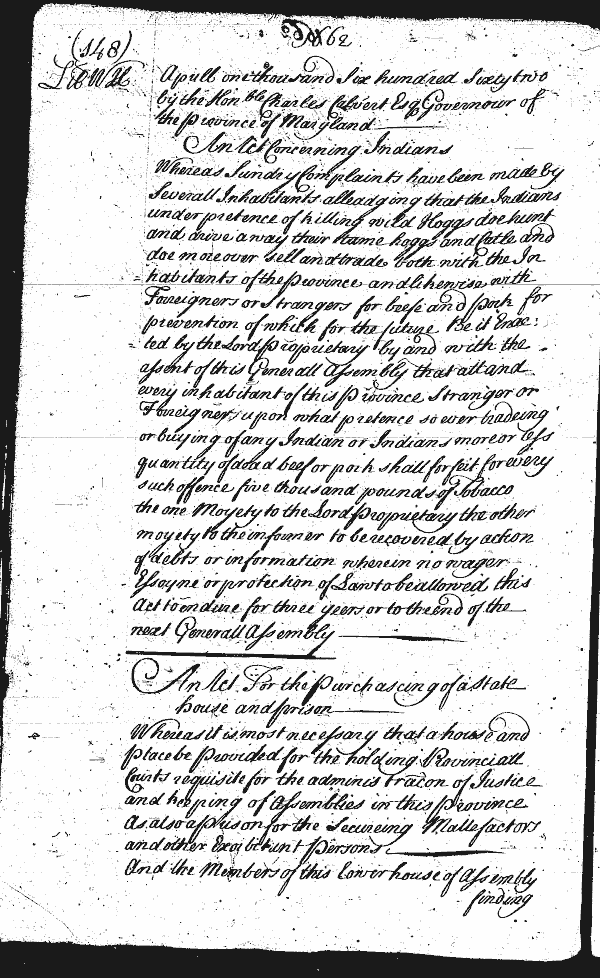 (148)
1662
Lib WH
Aprill one thousand Six hundred Sixty two
by the Honble Charles Calvert Esq Governour of
the Province of Maryland
An Act Concerning Indians
Whereas Sundry Complaints have been made by
Severall Inhabitants alleadging that the Indians
under pretence of killing wild Hoggs doe hunt
and drive away their tame hoggs and Catle and
doe moreover sell and trade both with the In
habitants of the Province and likewise with
Foreigners or Strangers for beefe and pork for
prevention of which for the future Be it Enac:
ted by the Lord Proprietary by and with the
assent of this Generall Assembly that all and
every inhabitant of this Province Stranger or
Foreigners upon what pretence so ever tradeing
or buying of any Indian or Indians more or less
quantity of dead beef or pork shall forfeit for every
such offence five thousand pounds of Tobacco
the one Moyety to the Lord Proprietary the other
moyety to the informer to be recovered by action
of debts or information wherein no wager
Essoyne or protection of Law to be allowed this
Act to endure for three yeers or to the end of the
next Generall Assembly
An Act For the purchaseing of a State
house and prison
Whereas it is most necessary that a house and
place be provided for the holding Provinciall
Courts requisite for the administracon of Justice
and keeping of Assemblies in this Province
As also a prison for the Secureing Mallefactors
and other Exorbitant Persons
And the Members of this Lower house of Assembly
finding